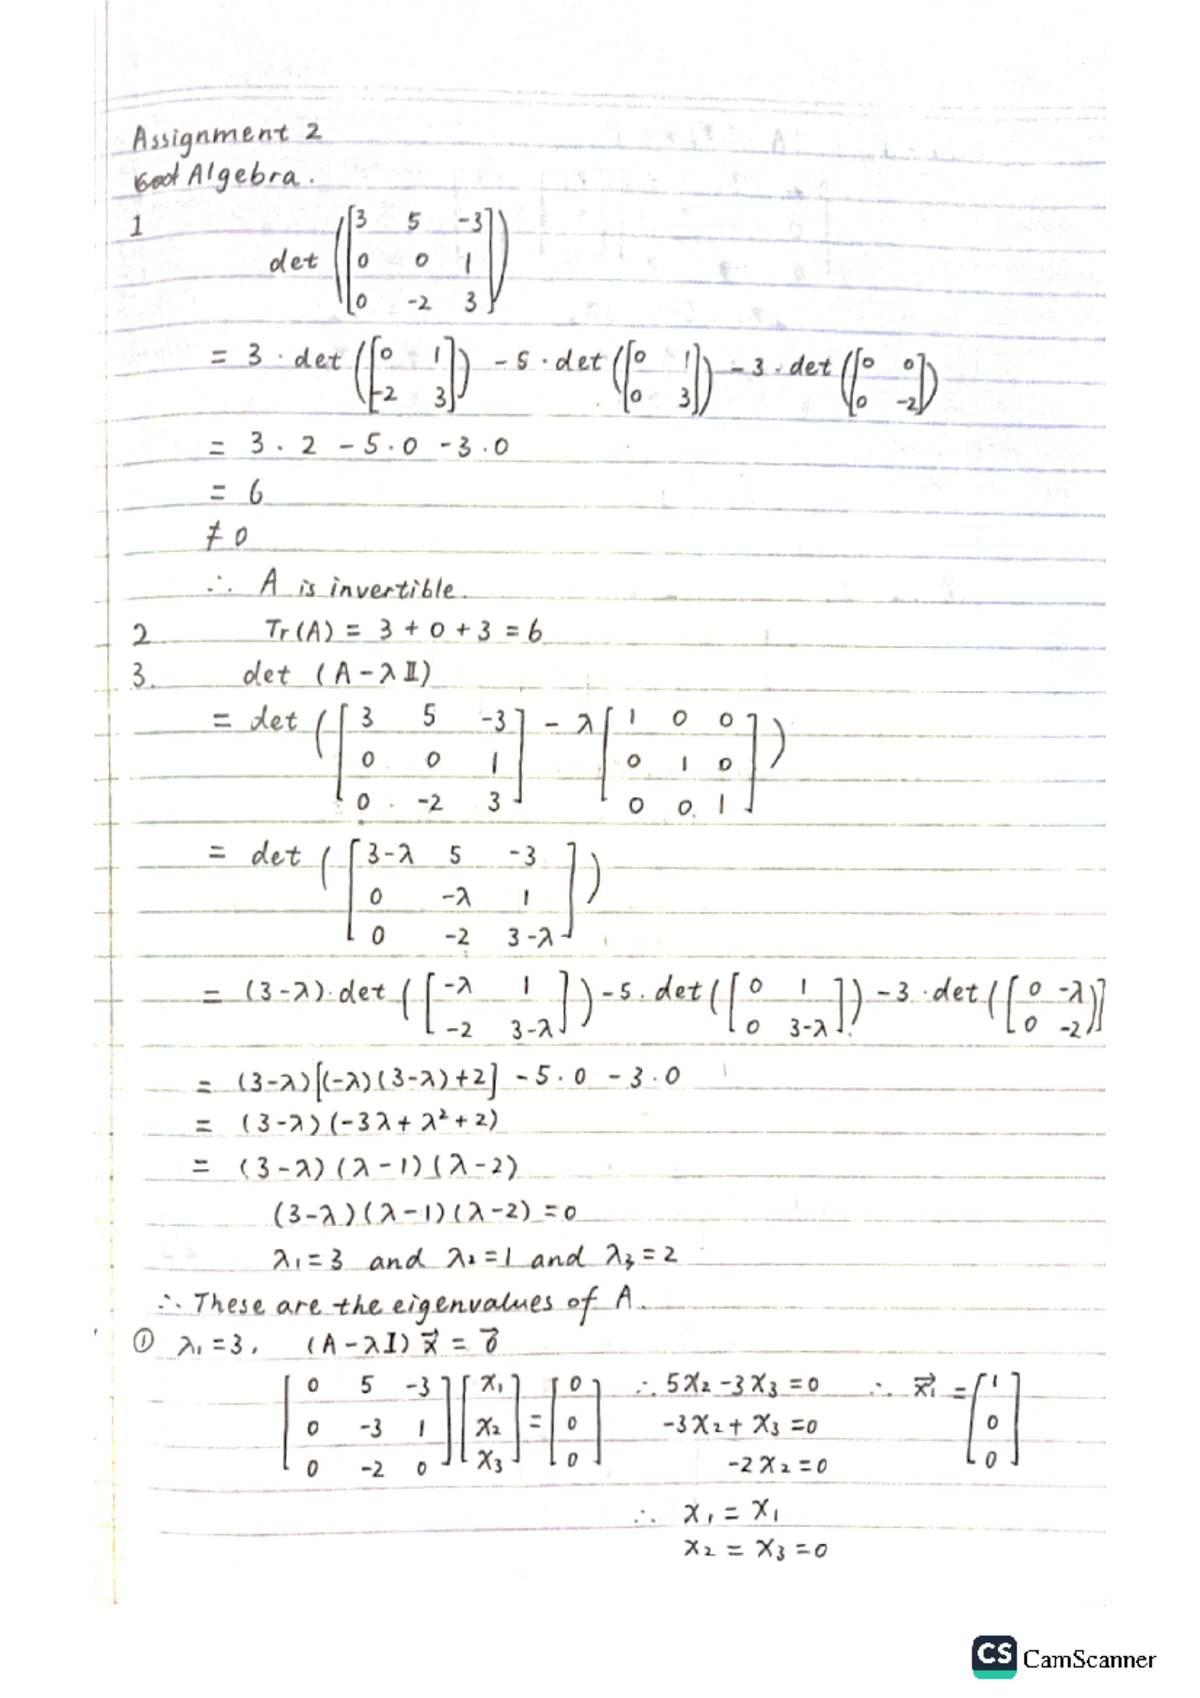 Assignment 2
Algebra.
1
det ([3 5 -3
0 0 1
0 -2 3])
= 3 · det ([0 1
-2 3]) - 5 · det ([0 1
0 3]) - 3 · det ([0 0
0 -2])
= 3 · 2 - 5 · 0 - 3 · 0
= 6
≠ 0
∴ A is invertible.
2. Tr(A) = 3 + 0 + 3 = 6
3. det (A - λ𝕀)
= det ([3 5 -3
0 0 1
0 -2 3] - λ[1 0 0
0 1 0
0 0 1])
= det ([3-λ 5 -3
0 -λ 1
0 -2 3-λ])
= (3-λ) · det ([-λ 1
-2 3-λ]) - 5 · det ([0 1
0 3-λ]) - 3 · det ([0 -λ
0 -2])
= (3-λ)[(-λ)(3-λ)+2] - 5 · 0 - 3 · 0
= (3-λ)(-3λ + λ² + 2)
= (3-λ)(λ-1)(λ-2)
(3-λ)(λ-1)(λ-2) = 0
λ₁ = 3 and λ₂ = 1 and λ₃ = 2
∴ These are the eigenvalues of A.
① λ₁ = 3, (A - λI) x⃗ = 0⃗
[0 5 -3
0 -3 1
0 -2 0] [x₁
x₂
x₃] = [0
0
0] ∴ 5x₂ - 3x₃ = 0
-3x₂ + x₃ = 0
-2x₂ = 0
∴ x⃗₁ = [1
0
0]
∴ x₁ = x₁
x₂ = x₃ = 0
CS CamScanner